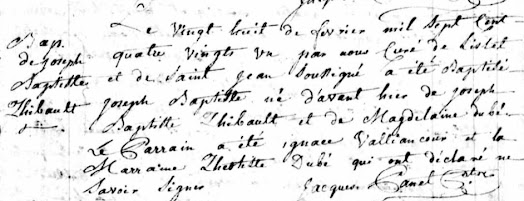 Bap.
de Joseph
Baptiste
Thibault
Le vingt huit de fevrier mil sept cent
quatre vingts un par nous Curé de Lislet
et de Saint Jean soussigné a été Baptisé
joseph Baptiste né d'avant hier de joseph
Baptiste Thibault et de Magdelaine dubé.
Le Parrain a été ignace Vaillancour et la
Marraine Theotiste Dubé qui ont déclaré ne
savoir signer Jacques Panet Ptre